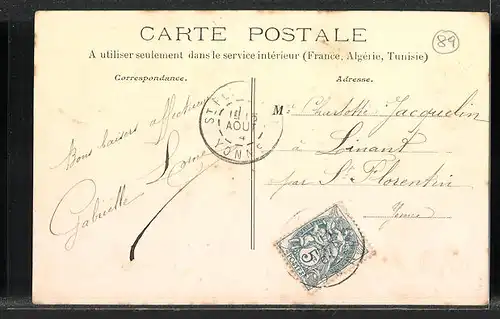 CARTE POSTALE
89
A utiliser seulement dans le service intérieur (France, Algérie, Tunisie)
Correspondance.
Adresse.
Bons baisers affectueux
Gabrielle
Mlle Charlotte Jacquelin
à Linant
par St Florentin
Yonne
AOUT
YONNE
5